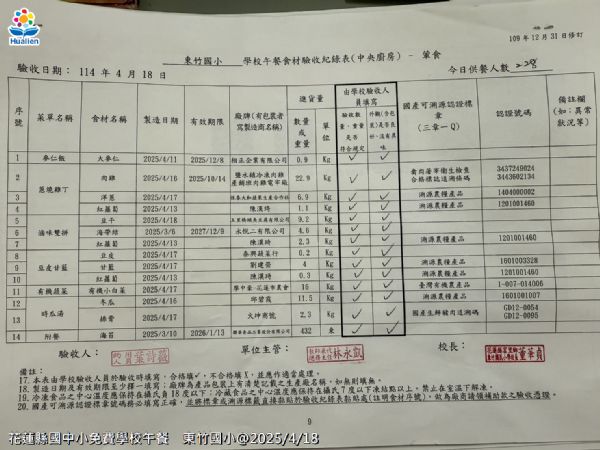 Hualien
109年12月31日修訂
東竹國小 學校午餐食材驗收紀錄表(中央廚房) - 葷食
驗收日期: 114年4月18日 今日供餐人數
序號 菜單名稱 食材名稱 製造日期 有效期限 廠牌(有包裝者寫製造商名稱) 進貨量 數量或重量 單位 由學校驗收人員填寫 國產可溯源認證標章(三章一Q) 認證號碼 備註欄(如:異常狀況等)
1 麥仁飯 大麥仁 2025/4/11 2025/12/8 相正企業有限公司 0.9 Kg
2 蔥燒雞丁 肉雞 2025/4/16 2025/10/14 22.9 Kg 3437249024 3443602134
3 洋蔥 2025/4/17 6.9 Kg 溯源農糧產品 1404000002
4 紅蘿蔔 2025/4/13 陳漢琦 1.1 Kg 溯源農糧產品 1201001460
5 滷味雙拼 豆干 2025/4/18 9.2 Kg
6 海帶結 2025/3/6 2027/12/9 永悅二有限公司 4.6 Kg
7 紅蘿蔔 2025/4/13 陳漢琦 2.3 Kg 溯源農糧產品 1201001460
8 豆皮甘藍 豆皮 2025/4/17 泰興蔬菜行 0.2 Kg
9 甘藍 2025/4/17 劉建榮 4 Kg 溯源農糧產品 1601003328
10 紅蘿蔔 2025/4/13 陳漢琦 0.3 Kg 溯源農糧產品 1201001460
11 有機蔬菜 有機小白菜 2025/4/17 學中堂-花蓮市農會 16 Kg 臺灣有機農產品 1-007-014006
12 時瓜湯 冬瓜 2025/4/16 邱碧霞 11.5 Kg 溯源農糧產品 1601001007
13 絲骨 2025/4/17 大坤商號 2.3 Kg 國產生鮮豬肉追溯碼 GD12-0054 GD12-0095
14 附餐 海苔 2025/3/10 2026/1/13 432 束
驗收人: 單位主管: 校長:
備註:
17. 本表由學校驗收人員於驗收時填寫,合格填✓,不合格填X,並應作適當處理。
18. 製造日期及有效期限至少擇一填寫;廠牌為產品包裝上有清楚記載之生產廠名稱,如無則填無。
19. 冷凍食品之中心溫度應保持在攝氏負18度以下;冷藏食品之中心溫度應保持在攝氏7度以下凍結點以上。禁止在室溫下解凍。
20. 國產可溯源認證標章號碼務必填寫正確,並將標章或溯源標籤直接黏貼於驗收紀錄表黏貼處(註明食材序號),做為廠商請領補助款之驗收憑證。
9
花蓮縣國中小免費學校午餐 東竹國小@2025/4/18